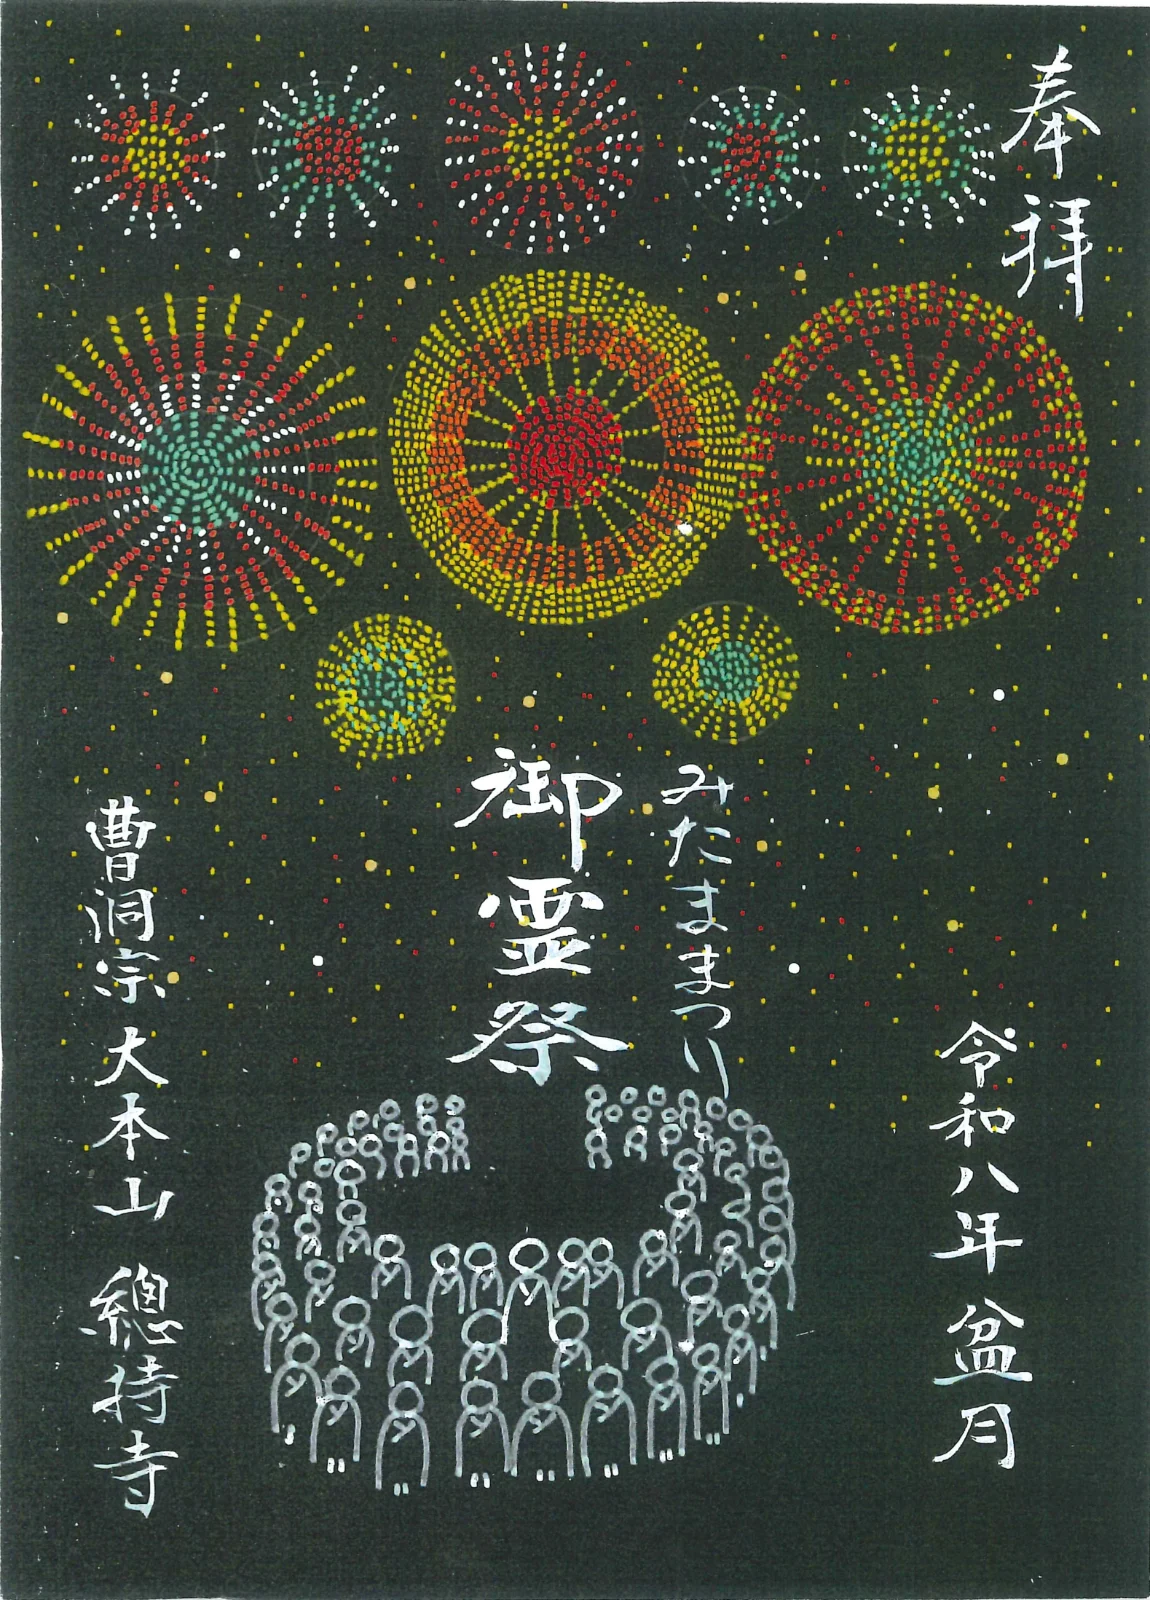 奉拝
令和八年 盆月
みたままつり
御霊祭
曹洞宗 大本山 總持寺